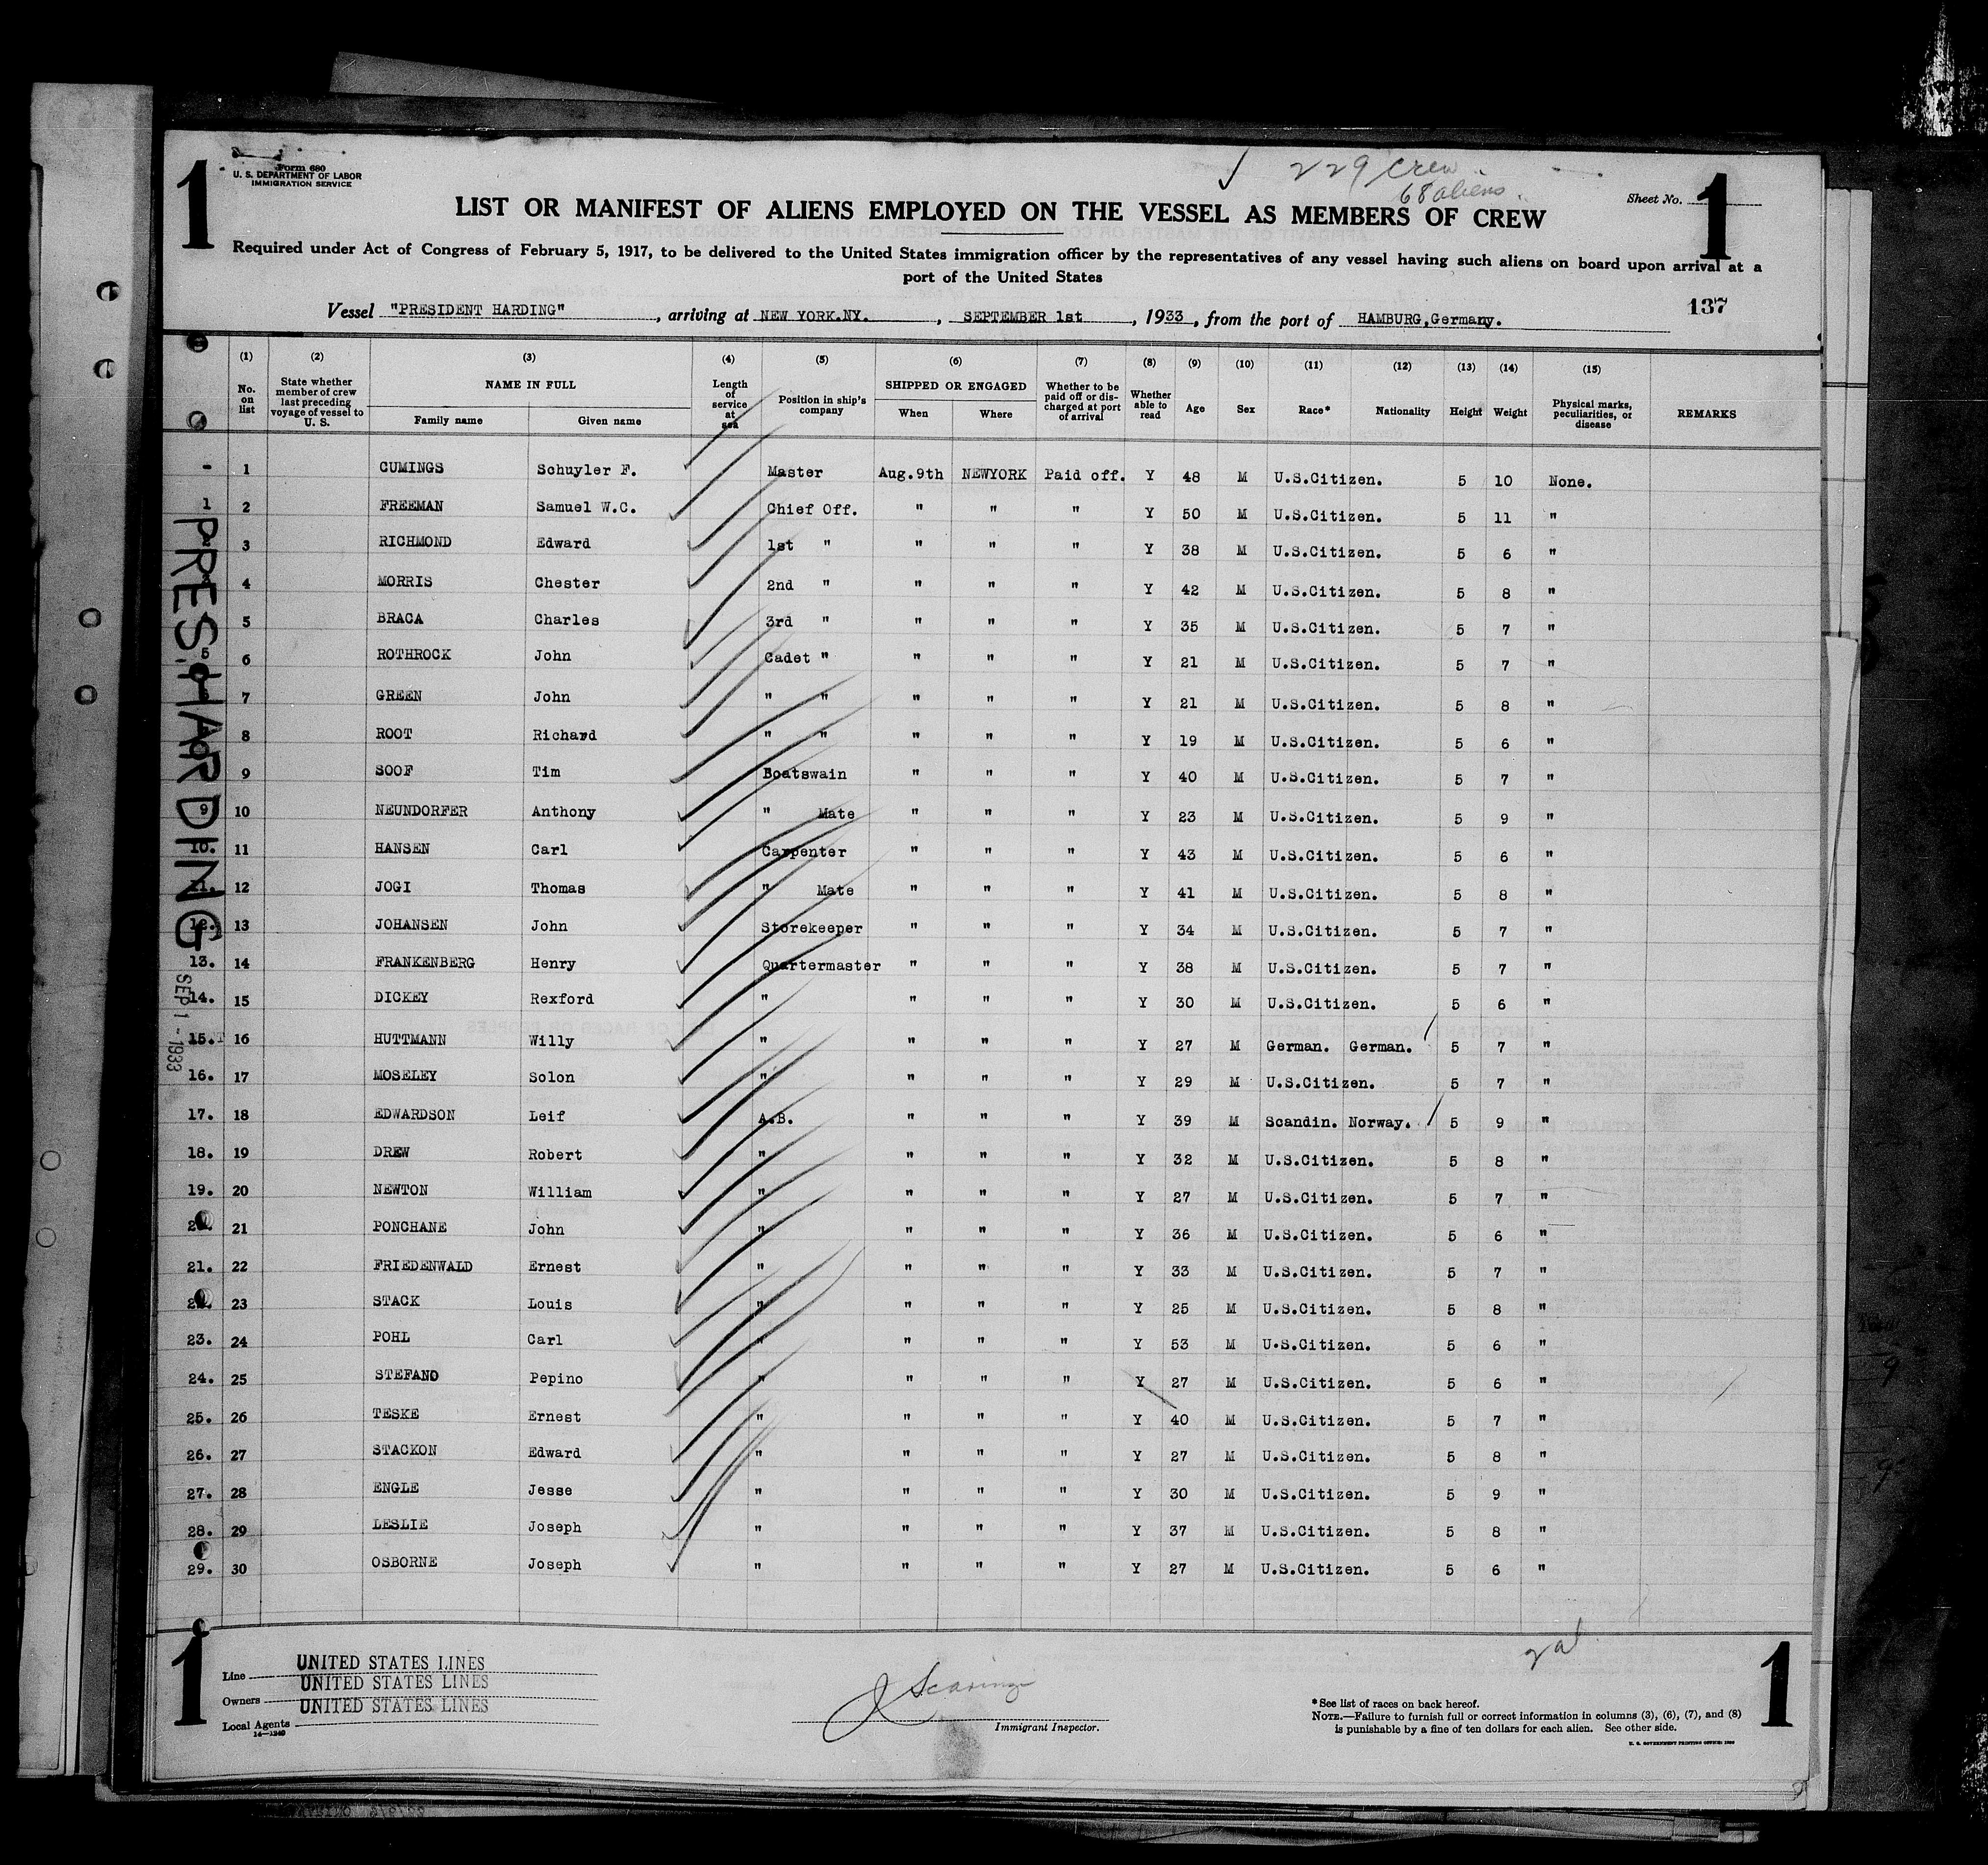 1
Form 680
U. S. DEPARTMENT OF LABOR
IMMIGRATION SERVICE
229 Crew
68 aliens
Sheet No. 1
LIST OR MANIFEST OF ALIENS EMPLOYED ON THE VESSEL AS MEMBERS OF CREW
Required under Act of Congress of February 5, 1917, to be delivered to the United States immigration officer by the representatives of any vessel having such aliens on board upon arrival at a
port of the United States
137
Vessel "PRESIDENT HARDING", arriving at NEW YORK.NY., SEPTEMBER 1st, 1933, from the port of HAMBURG,Germany.
(1) (2) (3) (4) (5) (6) (7) (8) (9) (10) (11) (12) (13) (14) (15)
No. on list | State whether member of crew last preceding voyage of vessel to U. S. | NAME IN FULL | Family name | Given name | Length of service at sea | Position in ship's company | SHIPPED OR ENGAGED | When | Where | Whether to be paid off or discharged at port of arrival | Whether able to read | Age | Sex | Race* | Nationality | Height | Weight | Physical marks, peculiarities, or disease | REMARKS
- 1 CUMINGS Schuyler F. Master Aug.9th NEWYORK Paid off. Y 48 M U.S.Citizen. 5 10 None.
1 2 FREEMAN Samuel W.C. Chief Off. " " " Y 50 M U.S.Citizen. 5 11 "
3 RICHMOND Edward 1st " " " " Y 38 M U.S.Citizen. 5 6 "
4 MORRIS Chester 2nd " " " " Y 42 M U.S.Citizen. 5 8 "
5 BRACA Charles 3rd " " " " Y 35 M U.S.Citizen. 5 7 "
5 6 ROTHROCK John Cadet " " " " Y 21 M U.S.Citizen. 5 7 "
7 GREEN John " " " " " Y 21 M U.S.Citizen. 5 8 "
8 ROOT Richard " " " " " Y 19 M U.S.Citizen. 5 6 "
9 SOOF Tim Boatswain " " " Y 40 M U.S.Citizen. 5 7 "
9 10 NEUNDORFER Anthony " Mate " " " Y 23 M U.S.Citizen. 5 9 "
10. 11 HANSEN Carl Carpenter " " " Y 43 M U.S.Citizen. 5 6 "
11. 12 JOGI Thomas " Mate " " " Y 41 M U.S.Citizen. 5 8 "
12. 13 JOHANSEN John Storekeeper " " " Y 34 M U.S.Citizen. 5 7 "
13. 14 FRANKENBERG Henry Quartermaster " " " Y 38 M U.S.Citizen. 5 7 "
14. 15 DICKEY Rexford " " " " Y 30 M U.S.Citizen. 5 6 "
15. 16 HUTTMANN Willy " " " " Y 27 M German. German. 5 7 "
16. 17 MOSELEY Solon " " " " Y 29 M U.S.Citizen. 5 7 "
17. 18 EDWARDSON Leif A.B. " " " Y 39 M Scandin. Norway. 5 9 "
18. 19 DREW Robert " " " " Y 32 M U.S.Citizen. 5 8 "
19. 20 NEWTON William " " " " Y 27 M U.S.Citizen. 5 7 "
21 PONCHANE John " " " " Y 36 M U.S.Citizen. 5 6 "
21. 22 FRIEDENWALD Ernest " " " " Y 33 M U.S.Citizen. 5 7 "
23 STACK Louis " " " " Y 25 M U.S.Citizen. 5 8 "
23. 24 POHL Carl " " " " Y 53 M U.S.Citizen. 5 6 "
24. 25 STEFANO Pepino " " " " Y 27 M U.S.Citizen. 5 6 "
25. 26 TESKE Ernest " " " " Y 40 M U.S.Citizen. 5 7 "
26. 27 STACKON Edward " " " " Y 27 M U.S.Citizen. 5 8 "
27. 28 ENGLE Jesse " " " " Y 30 M U.S.Citizen. 5 9 "
28. 29 LESLIE Joseph " " " " Y 37 M U.S.Citizen. 5 8 "
29. 30 OSBORNE Joseph " " " " Y 27 M U.S.Citizen. 5 6 "
PRES. HARDING
SEP 1 - 1933
1
Line UNITED STATES LINES
Owners UNITED STATES LINES
Local Agents UNITED STATES LINES
14—1240
Immigrant Inspector.
2 al
*See list of races on back hereof.
NOTE.—Failure to furnish full or correct information in columns (3), (6), (7), and (8)
is punishable by a fine of ten dollars for each alien. See other side.
1